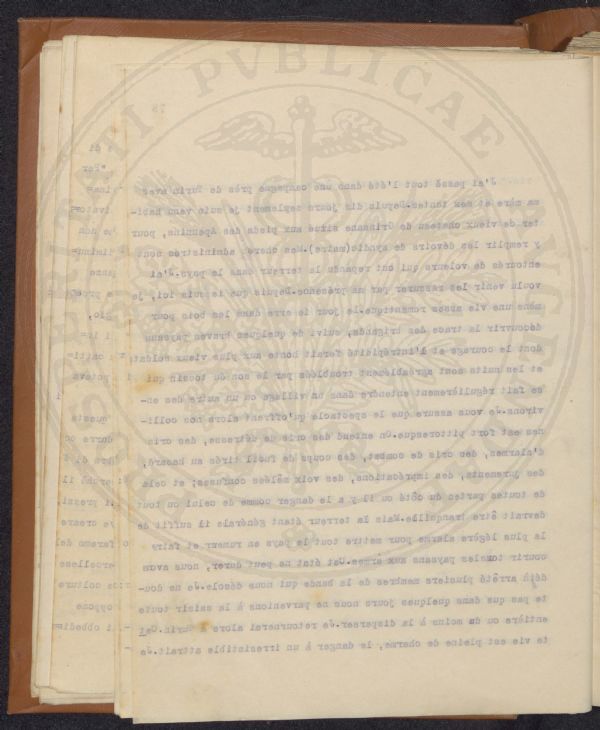 PVBLICAE
78
J'ai passé tout l'été dans une campagne près de Turin avec
ma mère et mes tantes.Depuis dix jours seulement je suis venu habi-
ter ce vieux chateau de Grinzane situé aux pieds des Apennins, pour
y remplir les devoirs de syndic(maire).Mes chers administrés sont
entourés de voleurs qui ont répandu la terreur dans le pays.J'ai
voulu venir les rassurer par ma présence.Depuis que je suis ici, je
mène une vie assez romantique.Le jour je erre dans les bois pour
découvrir la trace des brigands, suivi de quelques braves paysans
dont le courage et l'intrépidité ferait honte aux plus vieux soldats,
et les nuits sont agréablement troublées par le son du tocsin qui
se fait régulièrement entendre dans un village ou un autre des en-
virons.Je vous assure que le spectacle qu'offrent alors nos colli-
nes est fort pittoresque.On entend des cris de détresse, des cris
d'alarmes, des cris de combat, des coups de fusil tirés au hasard,
des jurements, des imprécations, des voix mêlées confuses; et cela
de toutes partes du côté ou il y a le danger comme de celui ou tout
devrait être tranquille.Mais la terreur étant générale il suffit de
la plus légère alarme pour mettre tout le pays en rumeur et faire
courir tous les paysans aux armes.Cet état ne peut durer, nous avons
déjà arrêté plusieurs membres de la bande qui nous désole.Je ne dou-
te pas que dans quelques jours nous ne parvenions à la saisir toute
entière ou du moins à la disperser.Je retournerai alors à Turin.Cet
te vie est pleine de charme, le danger à un irresistible attrait.Je